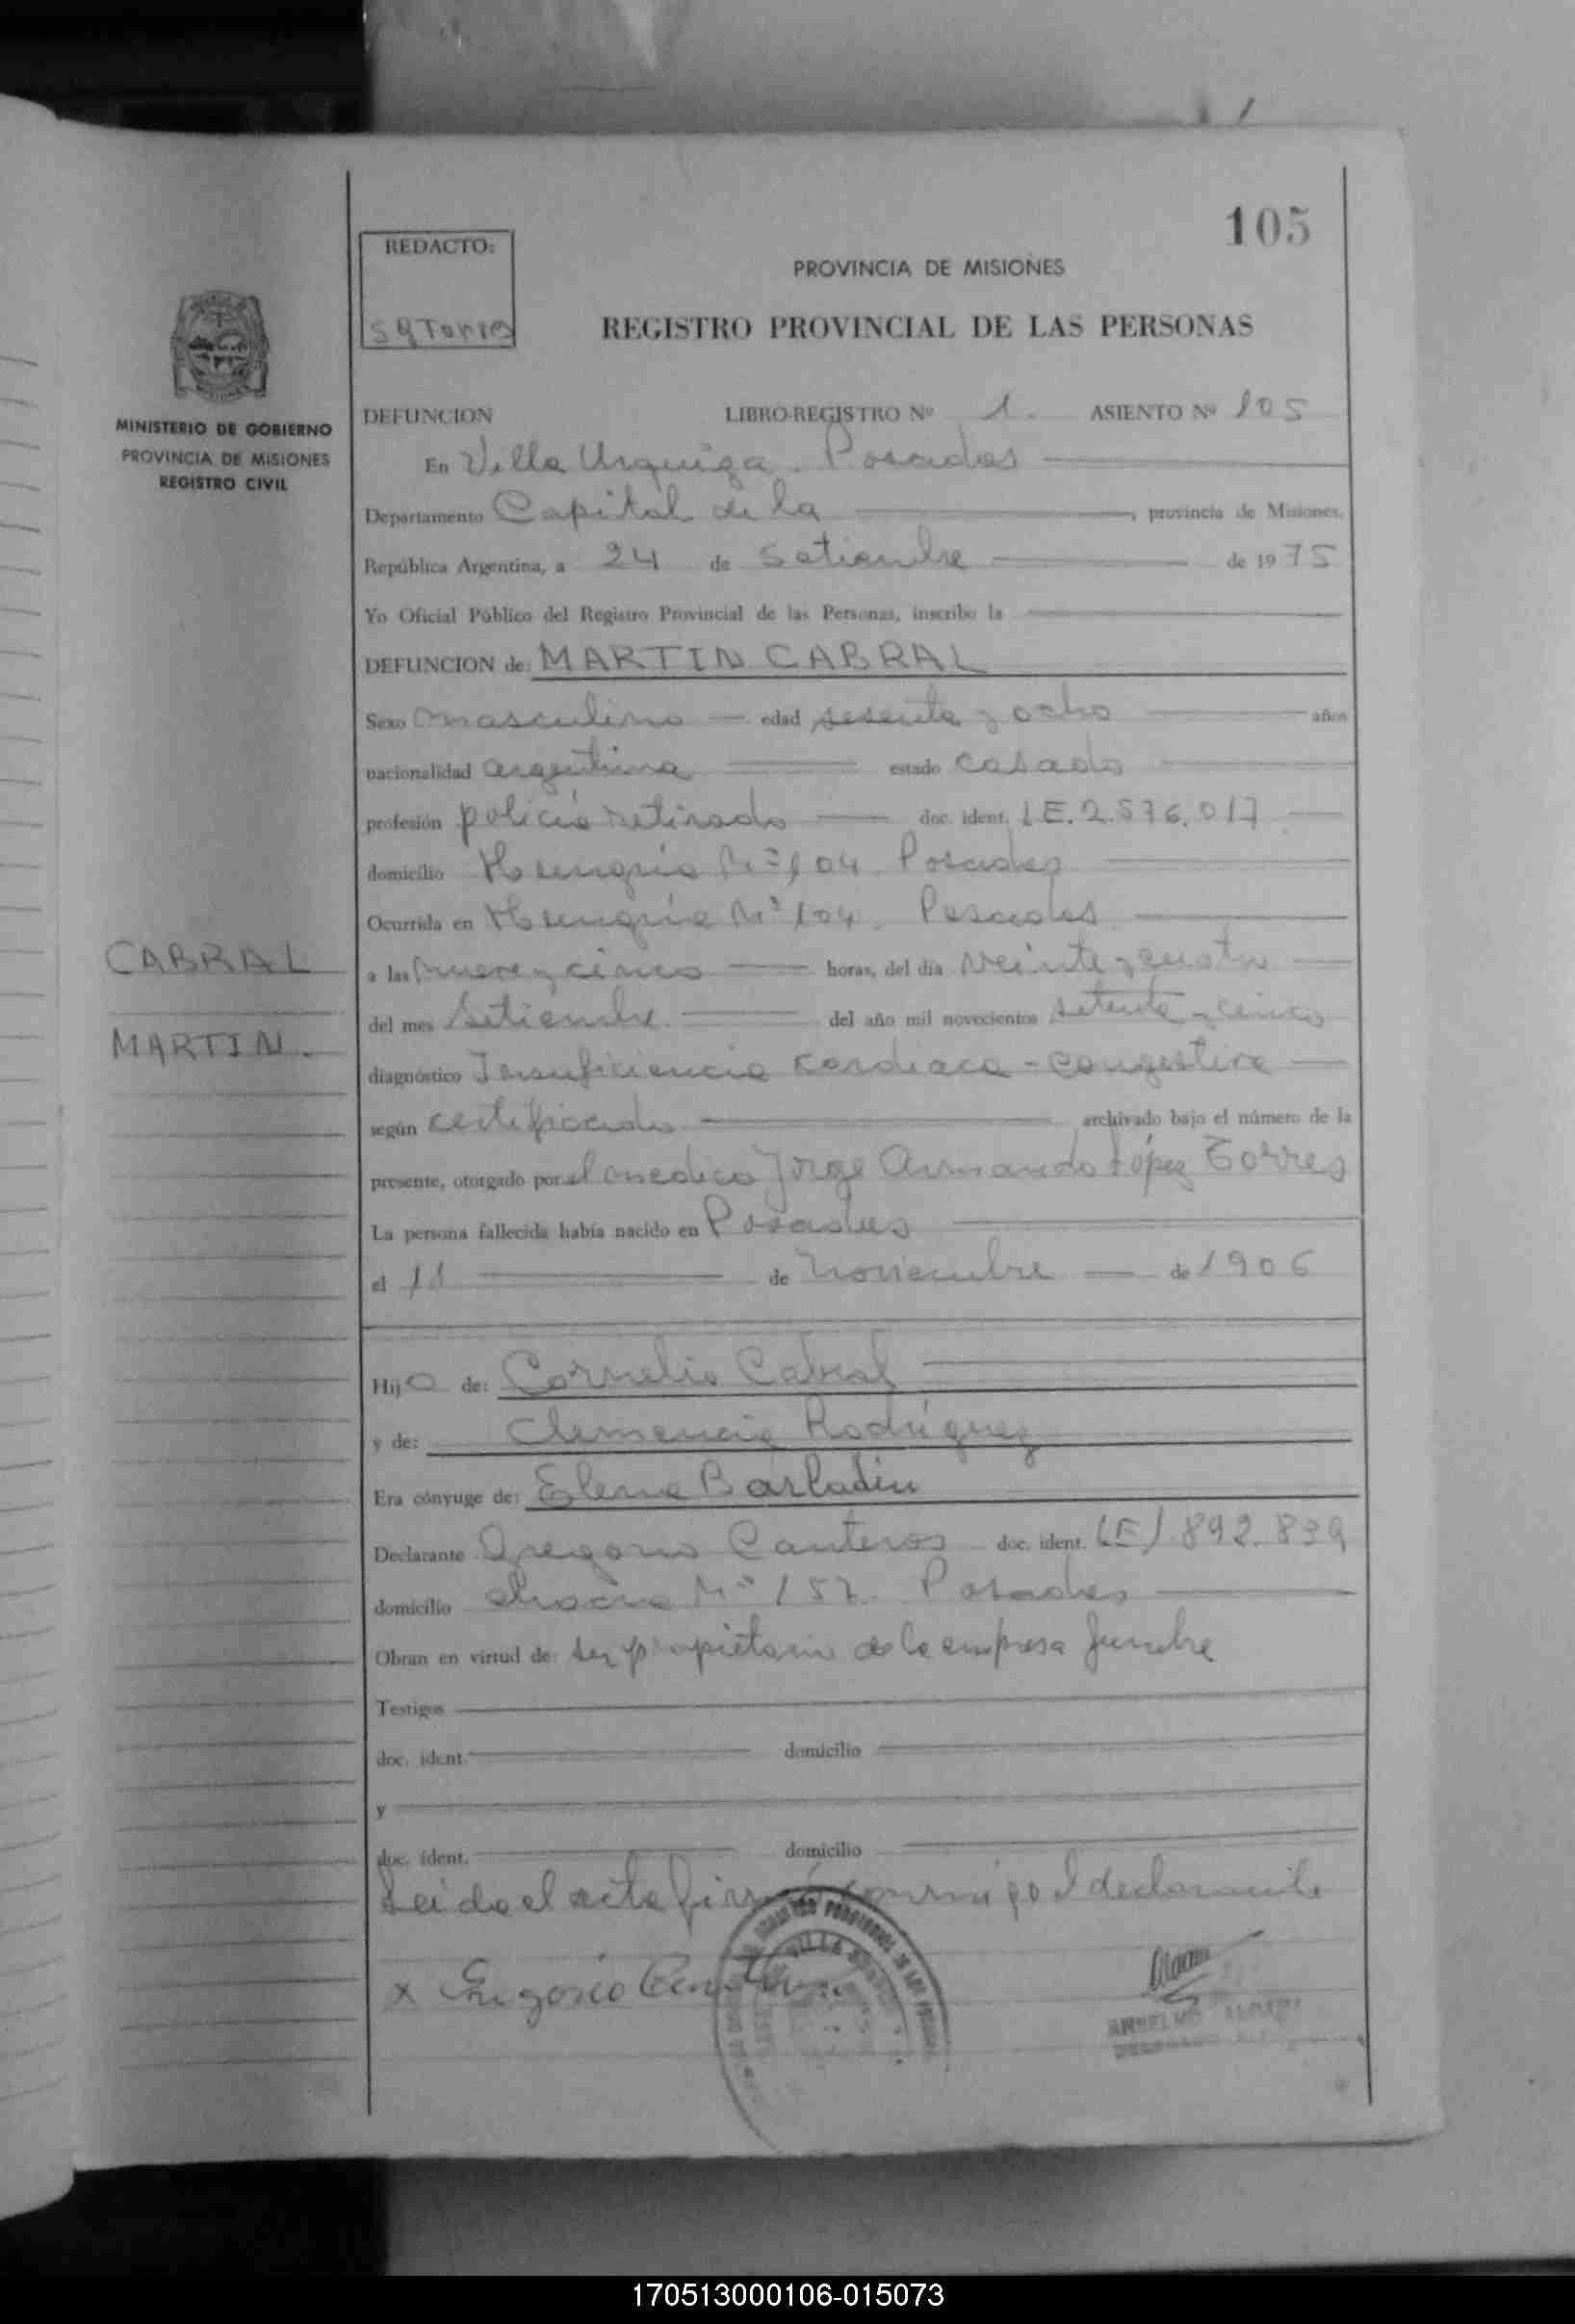 105
REDACTO:
PROVINCIA DE MISIONES
REGISTRO PROVINCIAL DE LAS PERSONAS
MINISTERIO DE GOBIERNO
PROVINCIA DE MISIONES
REGISTRO CIVIL
DEFUNCION LIBRO-REGISTRO Nº 1. ASIENTO Nº 105
En Villa Urquiza. Posadas
Departamento Capital de la , provincia de Misiones.
República Argentina, a 24 de Setiembre de 1975
Yo Oficial Público del Registro Provincial de las Personas, inscribo la
DEFUNCION de: MARTIN CABRAL
Sexo masculino edad sesenta y ocho años
nacionalidad argentina estado casado
profesión policía retirado doc. ident. LE. 2.576.017
domicilio Hungría Nº 104. Posadas
Ocurrida en Hungría Nº 104. Posadas
a las nueve y cinco horas, del día veinte y cuatro
del mes Setiembre del año mil novecientos setenta y cinco
CABRAL
MARTIN.
diagnóstico Insuficiencia cardiaca - congestiva
según certificado archivado bajo el número de la
presente, otorgado por el médico Jorge Armando López Torres
La persona fallecida había nacido en Posadas
el 11 de noviembre de 1906
Hijo de: Cornelio Cabral
y de: Clemencia Rodríguez
Era cónyuge de: Elena Barladin
Declarante Gregorio Canteros doc. ident. LE 1.892.839
domicilio Nº 157. Posadas
Obran en virtud de: ser propietario de la empresa funebre
Testigos
doc. ident. domicilio
y
doc. ident. domicilio
Leida el acta firmó conmigo el declarante
x Gregorio Canteros
ANSELMO
170513000106-015073